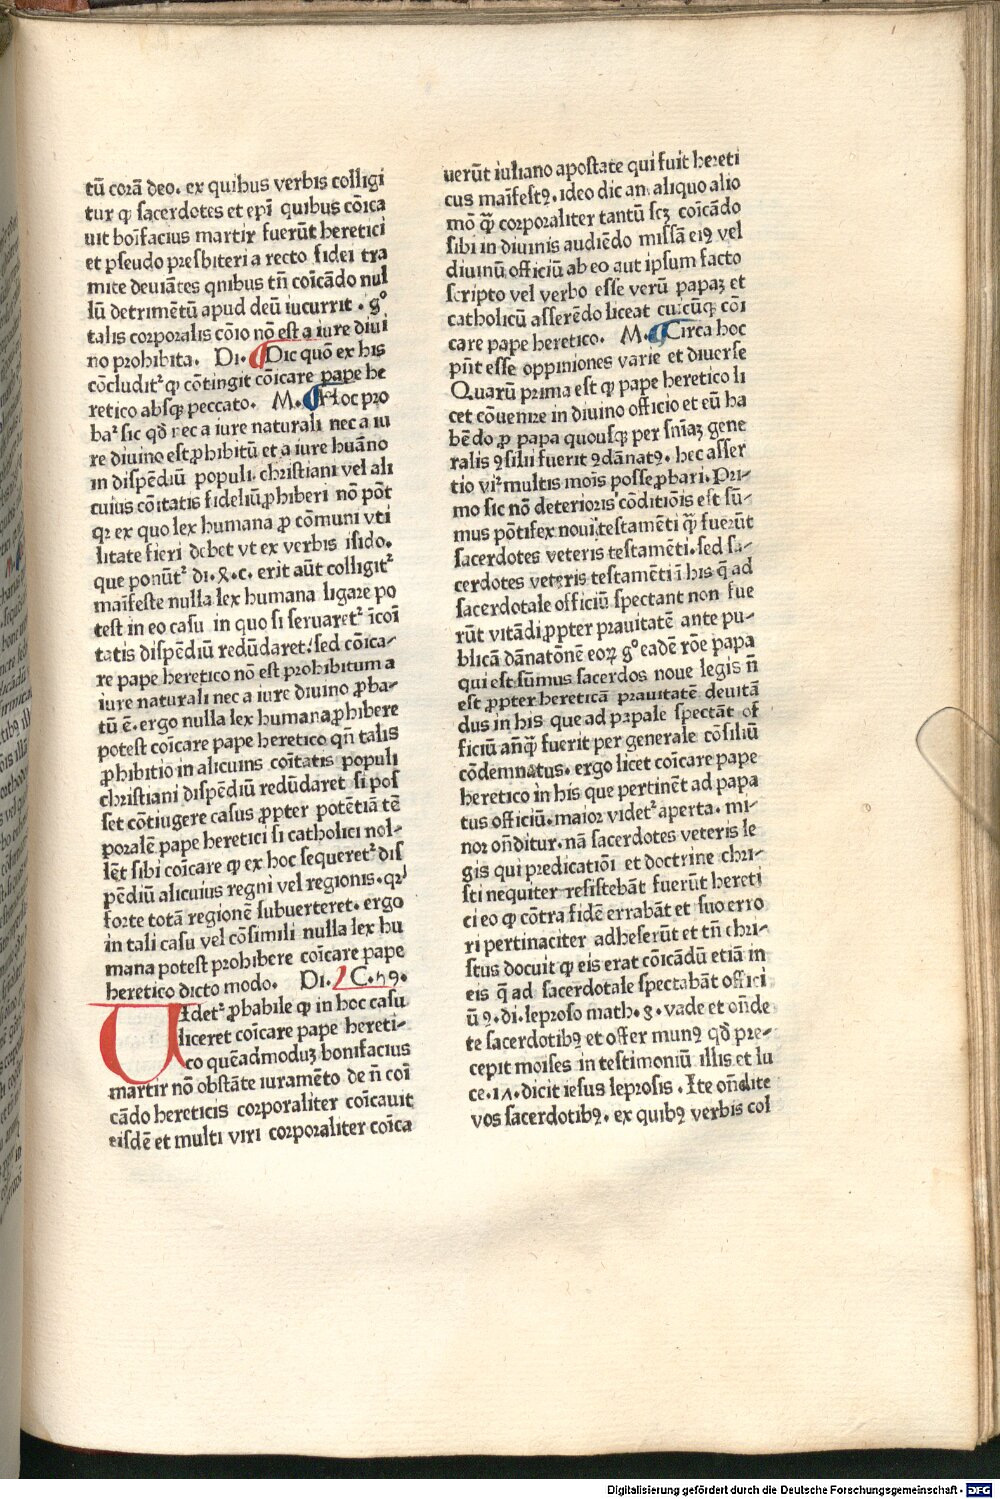 tū corā deo. ex quibus verbis colligi
tur ꝙ sacerdotes et epī quibus cōica
uit boīfacius martir fuerūt heretici
et pseudo presbiteri a recto fidei tra
mite deuiātes qnibus tn̄ coīcādo nul
lū detrimētū apud deū iucurrit. gº
talis corporalis cōio nō est a iure diui
no prohibita. Di. Dic quō ex his
cōcludit᷒ ꝙ cōtingit cōicare pape he
retico absqꝫ peccato. M. Hoc pro
ba᷒ sic qd̄ nec a iure naturali nec a iu
re diuino est ꝓhibitū et a iure huāno
in dispēdiū populi christiani vel ali
cuius cōitatis fideliū ꝓhiberi nō pōt
qꝛ ex quo lex humana ꝓ cōmuni vti
litate fieri debet vt ex verbis isido.
que ponūt᷒ di. x. c. erit aūt colligit᷒
maīfeste nulla lex humana ligare po
test in eo casu in quo si seruaret᷒ īcoī
tatis dispēdiū redūdaret: sed cōica-
re pape heretico nō est prohibitum a
iure naturali nec a iure diuino ꝓba-
tū ē. ergo nulla lex humana ꝓhibere
potest coīcare pape heretico qn̄ talis
ꝓhibitio in alicuins coītatis populi
christiani dispēdiū redūdaret si pos
set cōtiugere casus ꝓpter potētiā tē
poralē pape heretici si catholici nol-
lēt sibi coīcare ꝙ ex hoc sequeret᷒ dis
pēdiū alicuius regni vel regionis. qꝛ
forte totā regionē subuerteret. ergo
in tali casu vel cōsimili nulla lex hu
mana potest prohibere coīcare pape
heretico dicto modo. Di. C. 59.
Uidet᷒ ꝓbabile ꝙ in hoc casu
liceret coīcare pape hereti-
co quēadmoduꝫ bonifacius
martir nō obstāte iuramēto de n̄ coī
cādo hereticis corporaliter coīcauit
eisdē et multi viri corporaliter coīca
uerūt iuliano apostate qui fuit hereti
cus maīfestꝰ. ideo dic an aliquo alio
mō qꝫ̄ corporaliter tantū scꝫ coīcādo
sibi in diuinis audiēdo missā eiꝰ vel
diuinū officiū ab eo aut ipsum facto
scripto vel verbo esse verū papaꝫ et
catholicū asserēdo liceat cuicūqꝫ cōi
care pape heretico. M. Circa hoc
pn̄t esse oppiniones varie et diuerse
Quarū prima est ꝙ pape heretico li
cet cōuenire in diuino officio et eū ha
bēdo ꝓ papa quousqꝫ per sn̄iaꝫ gene
ralis ꝯsilii fuerit ꝯdānatꝰ. hec asser
tio vi᷒ multis mois posse ꝓbari. Pri-
mo sic nō deterioris cōditiōis est sū-
mus pōtifex noui testamēti qꝫ̄ fuerūt
sacerdotes veteris testamēti. sed sa-
cerdotes veteris testamēti ī his q̄ ad
sacerdotale officiū spectant non fue
rūt vitādi ꝓpter prauitatē ante pu-
blicā dānatōnē eoꝝ gº eadē rōe papa
qui est sūmus sacerdos noue legis n̄
est ꝓpter hereticā prauitatē deuitā
dus in his que ad papale spectāt of
ficiū anq̄ꝫ fuerit per generale cōsiliū
cōdemnatus. ergo licet coīcare pape
heretico in his que pertinēt ad papa
tus officiū. maior videt᷒ aperta. mi-
nor on̄ditur. nā sacerdotes veteris le
gis qui predicatiōi et doctrine chri-
sti nequiter resistebāt fuerūt hereti
ci eo ꝙ cōtra fidē errabāt et suo erro
ri pertinaciter adheserūt et tn̄ chri-
stus docuit ꝙ eis erat cōicādū etiā in
eis q̄ ad sacerdotale spectabāt offici
ū ꝯ. di. leproso math. 8. vade et on̄de
te sacerdotibꝰ et offer munꝰ qd̄ pre-
cepit moises in testimoniū illis et lu
ce. 17. dicit iesus leprosis. Ite on̄dite
vos sacerdotibꝰ. ex quibꝰ verbis col
Digitalisierung gefördert durch die Deutsche Forschungsgemeinschaft - DFG